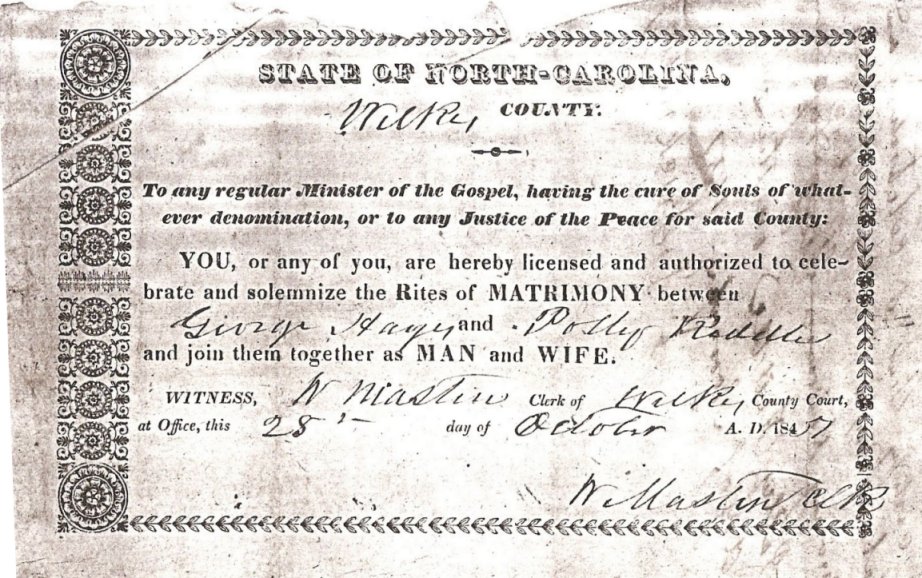 STATE OF NORTH-CAROLINA,
Wilkes COUNTY.
To any regular Minister of the Gospel, having the cure of Souls of what-
ever denomination, or to any Justice of the Peace for said County:
YOU, or any of you, are hereby licensed and authorized to cele-
brate and solemnize the Rites of MATRIMONY between
George Hays and Polly
and join them together as MAN and WIFE.
WITNESS, W Mastin Clerk of Wilkes County Court,
at Office, this 28 day of October A. D. 184
W Mastin Clk